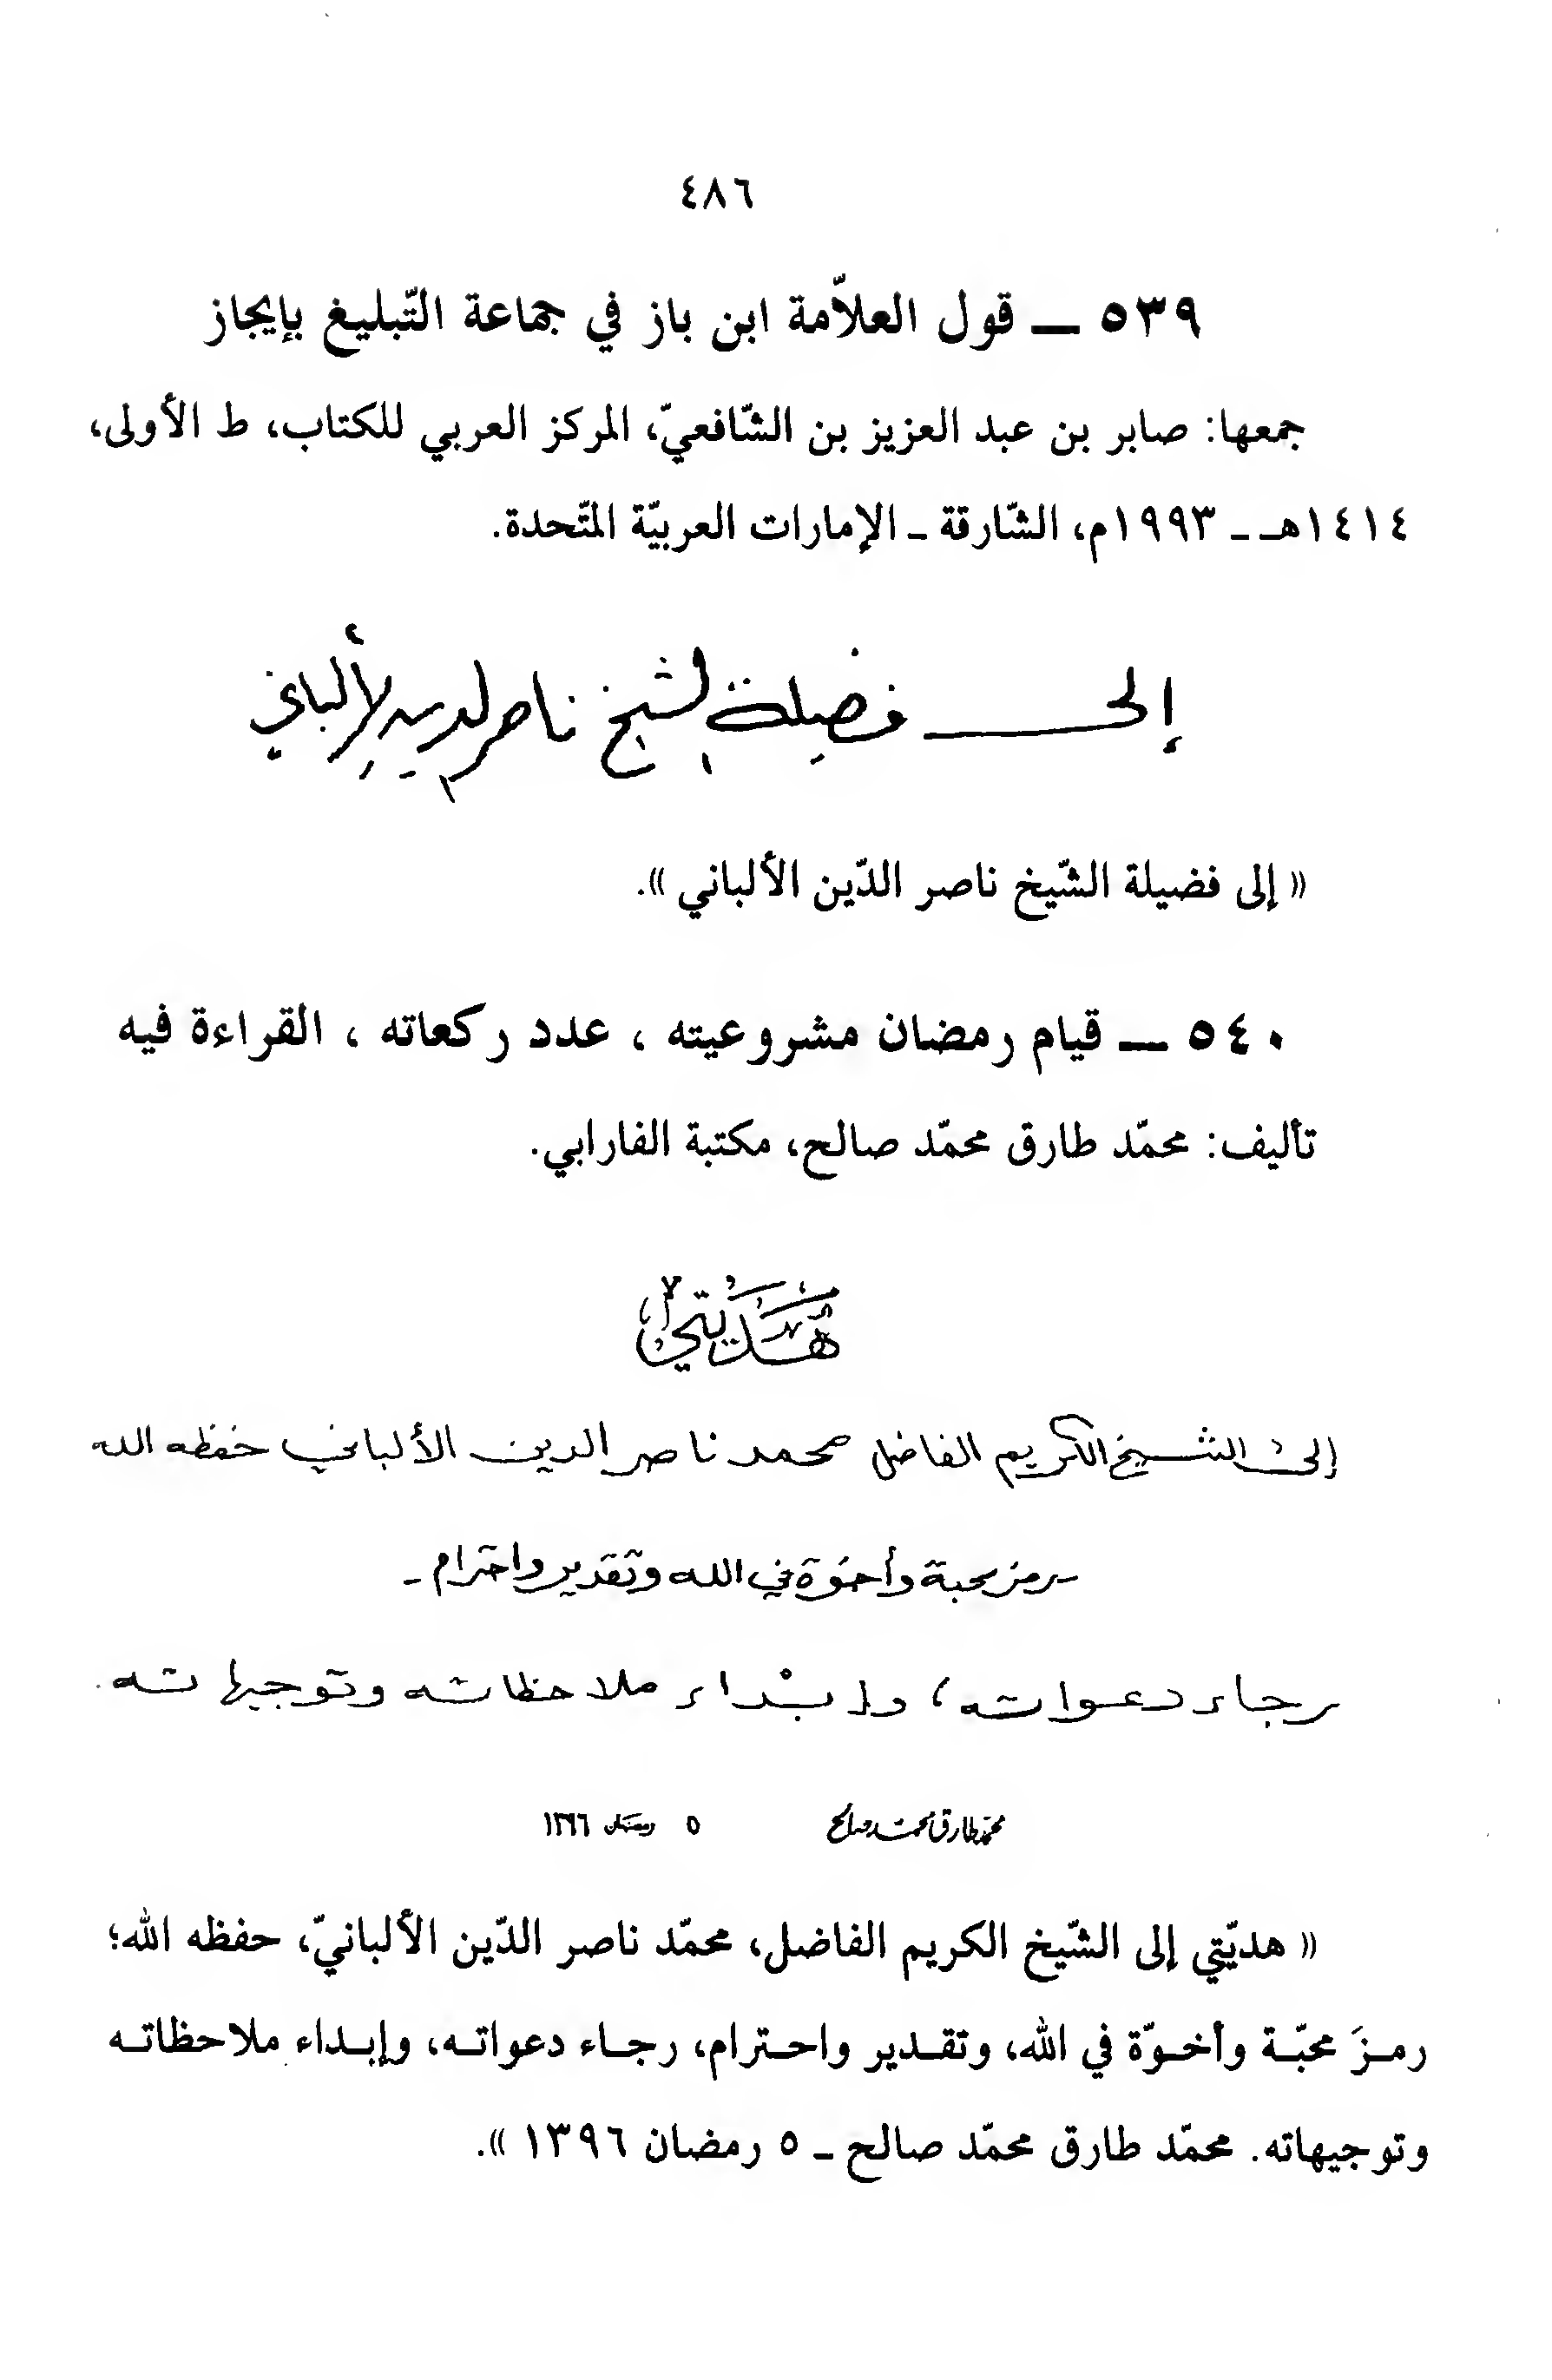 ٤٨٦
٥٣٩ ـ قول العلاّمة ابن باز في جماعة التّبليغ بإيجاز
جمعها: صابر بن عبد العزيز بن الشّافعيّ، المركز العربي للكتاب، ط الأولى،
١٤١٤هـ ـ ١٩٩٣م، الشّارقة ـ الإمارات العربيّة المتّحدة.
إلى فضيلة الشيخ ناصر الدين الألباني
« إلى فضيلة الشّيخ ناصر الدّين الألباني ».
٥٤٠ ـ قيام رمضان مشروعيته ، عدد ركعاته ، القراءة فيه
تأليف: محمّد طارق محمّد صالح، مكتبة الفارابي.
هديتي
إلى الشيخ الكريم الفاضل محمد ناصر الدين الألباني حفظه الله
ـ رمز محبة وأخوّة في الله وتقدير واحترام ـ
رجاء دعواته، وإبداء ملاحظاته وتوجيهاته.
محمد طارق محمد صالح ٥ رمضان ١٣٩٦
« هديّتي إلى الشّيخ الكريم الفاضل، محمّد ناصر الدّين الألبانيّ، حفظه الله؛
رمزَ محبّة وأخوّة في الله، وتقدير واحترام، رجاء دعواته، وإبداء ملاحظاته
وتوجيهاته. محمّد طارق محمّد صالح ـ ٥ رمضان ١٣٩٦ ».